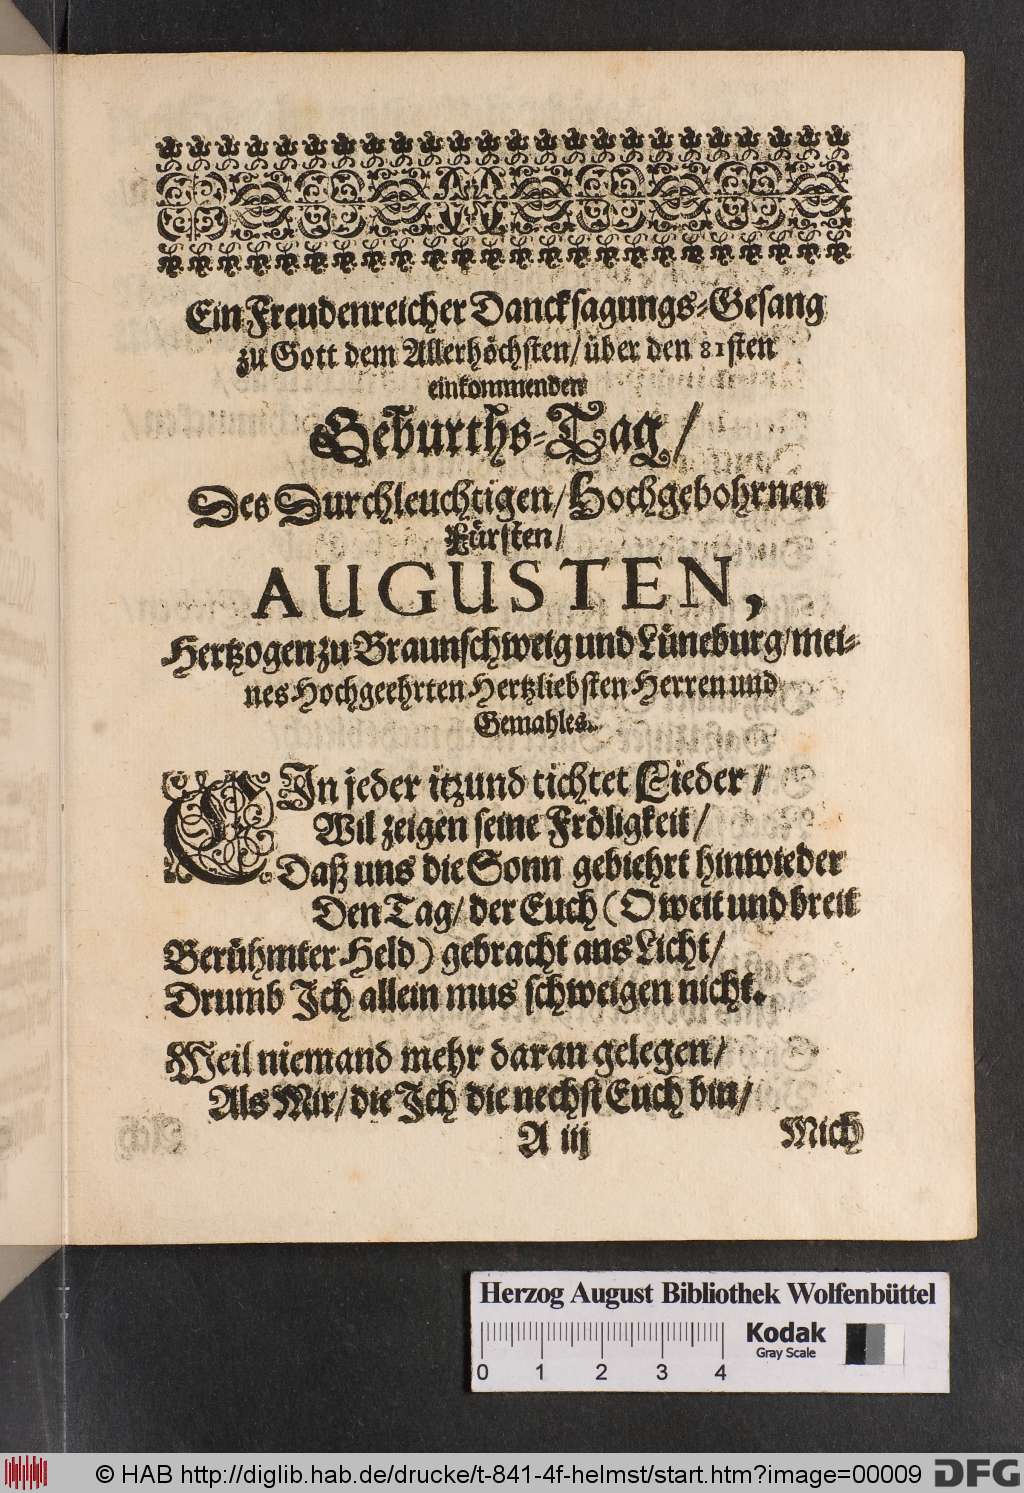 Ein Freudenreicher Dancksagungs-Gesang
zu Gott dem Allerhöchsten/ über den 81sten
einkommenden
Geburths-Tag/
Des Durchleuchtigen/ Hochgebohrnen
Fürsten/
AUGUSTEN,
Hertzogen zu Braunschweig und Lüneburg/ mei-
nes Hochgeehrten Hertzliebsten Herren und
Gemahles.
EIn jeder itzund tichtet Lieder/
Wil zeigen seine Fröligkeit/
Daß uns die Sonn gebiehrt hinwieder
Den Tag/ der Euch (O weit und breit
Berühmter Held) gebracht ans Licht/
Drumb Ich allein mus schweigen nicht.
Weil niemand mehr daran gelegen/
Als Mir/ die Ich die nechst Euch bin/
A iij
Mich
Herzog August Bibliothek Wolfenbüttel
0 1 2 3 4
Kodak
Gray Scale
© HAB http://diglib.hab.de/drucke/t-841-4f-helmst/start.htm?image=00009
DFG